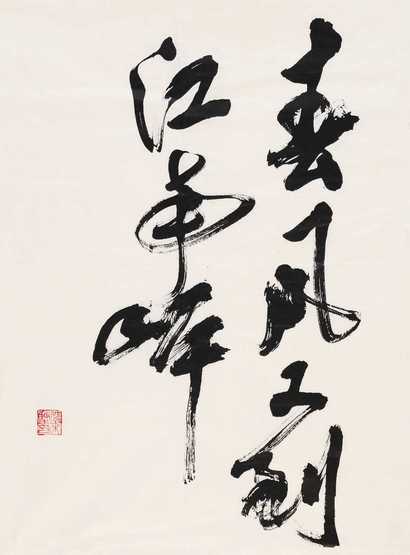 春风又到
江南岸